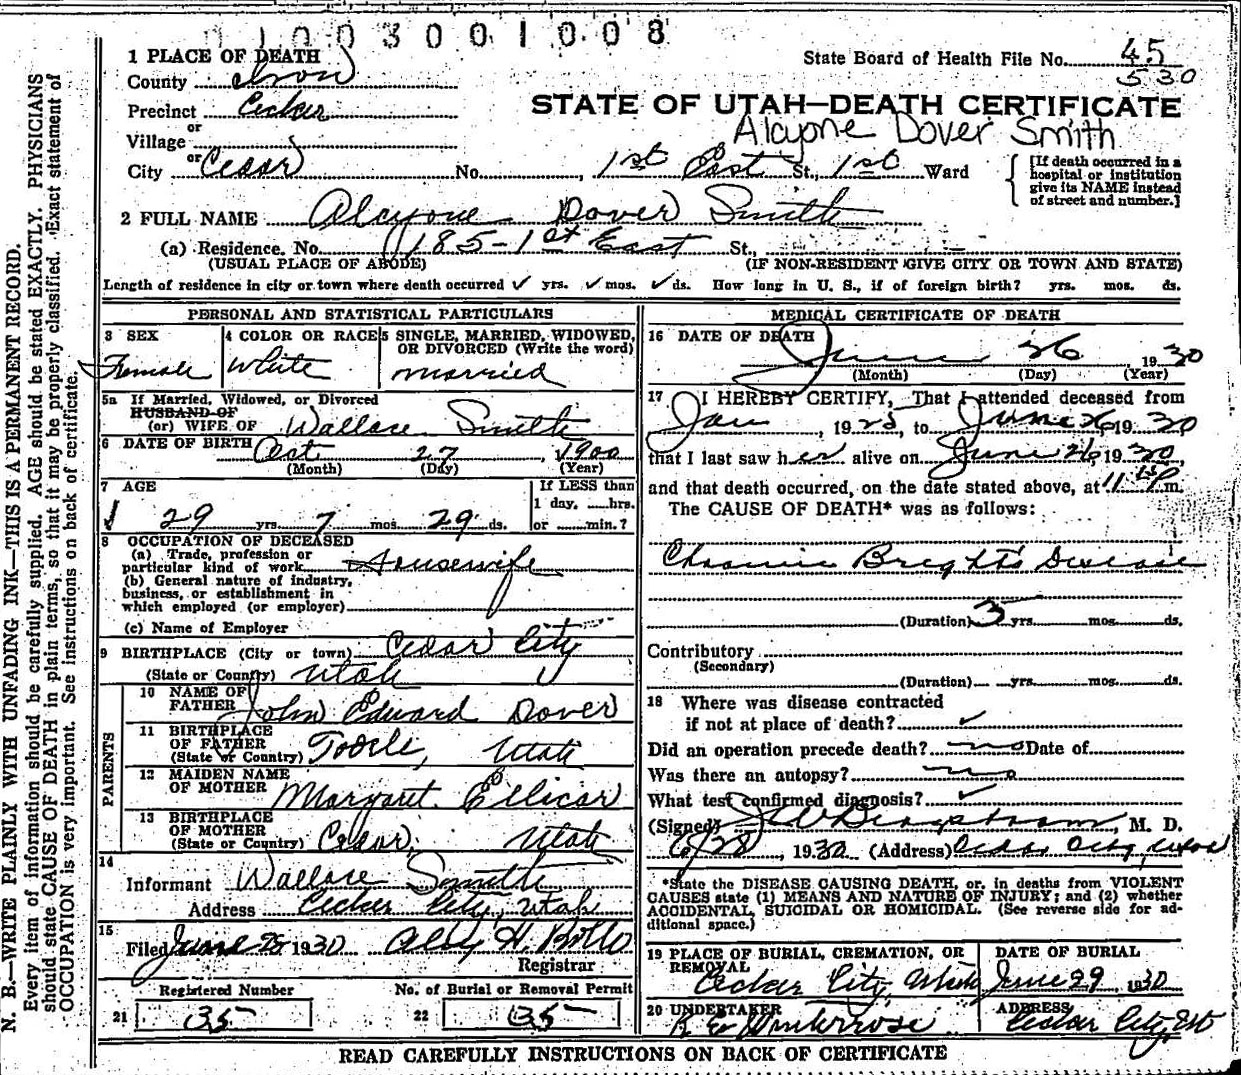 1003001008
1 PLACE OF DEATH
State Board of Health File No. 45
530
County Iron
Precinct Cedar
STATE OF UTAH—DEATH CERTIFICATE
Alcyone Dover Smith
or
Village
or
City Cedar No. , 1st East St., 1st Ward
[If death occurred in a hospital or institution give its NAME instead of street and number.]
2 FULL NAME Alcyone Dover Smith
(a) Residence. No. 185-1st East St.,
(USUAL PLACE OF ABODE) (IF NON-RESIDENT GIVE CITY OR TOWN AND STATE)
Length of residence in city or town where death occurred ✓ yrs. ✓ mos. ✓ ds. How long in U. S., if of foreign birth? yrs. mos. ds.
PERSONAL AND STATISTICAL PARTICULARS
3 SEX 4 COLOR OR RACE 5 SINGLE, MARRIED, WIDOWED,
OR DIVORCED (Write the word)
Female White Married
5a If Married, Widowed, or Divorced
HUSBAND OF
(or) WIFE OF Wallace Smith
6 DATE OF BIRTH Oct 27, 1900
(Month) (Day) (Year)
7 AGE If LESS than
1 day, hrs.
29 yrs. 7 mos. 29 ds. or min.?
8 OCCUPATION OF DECEASED
(a) Trade, profession or
particular kind of work Housewife
(b) General nature of industry,
business, or establishment in
which employed (or employer)
(c) Name of Employer
9 BIRTHPLACE (City or town) Cedar City
(State or Country) Utah
PARENTS
10 NAME OF
FATHER John Edward Dover
11 BIRTHPLACE
OF FATHER
(State or Country) Tooele, Utah
12 MAIDEN NAME
OF MOTHER Margaret Ellicar
13 BIRTHPLACE
OF MOTHER
(State or Country) Cedar, Utah
14
Informant Wallace Smith
Address Cedar City, Utah
15
Filed June 28 1930
Registrar
Registered Number No. of Burial or Removal Permit
21 35 22 35
MEDICAL CERTIFICATE OF DEATH
16 DATE OF DEATH
June 26 1930
(Month) (Day) (Year)
17 I HEREBY CERTIFY, That I attended deceased from
Jan , 1925, to June 26, 1930
that I last saw her alive on June 26, 1930,
and that death occurred, on the date stated above, at 11 P m.
The CAUSE OF DEATH* was as follows:
Chronic Bright's Disease
(Duration) 5 yrs. mos. ds.
Contributory
(Secondary)
(Duration) yrs. mos. ds.
18 Where was disease contracted
if not at place of death? ✓
Did an operation precede death? no Date of
Was there an autopsy? no
What test confirmed diagnosis? ✓
(Signed) Bergstrom, M. D.
6/28, 1930 (Address) Cedar City, Utah
*State the DISEASE CAUSING DEATH, or, in deaths from VIOLENT
CAUSES state (1) MEANS AND NATURE OF INJURY; and (2) whether
ACCIDENTAL, SUICIDAL OR HOMICIDAL. (See reverse side for ad-
ditional space.)
19 PLACE OF BURIAL, CREMATION, OR
REMOVAL
Cedar City, Utah
DATE OF BURIAL
June 29 1930
20 UNDERTAKER
ADDRESS
Cedar City, Ut
READ CAREFULLY INSTRUCTIONS ON BACK OF CERTIFICATE
N. B.—WRITE PLAINLY WITH UNFADING INK—THIS IS A PERMANENT RECORD.
Every item of information should be carefully supplied. AGE should be stated EXACTLY. PHYSICIANS
should state CAUSE OF DEATH in plain terms, so that it may be properly classified. Exact statement of
OCCUPATION is very important. See instructions on back of certificate.